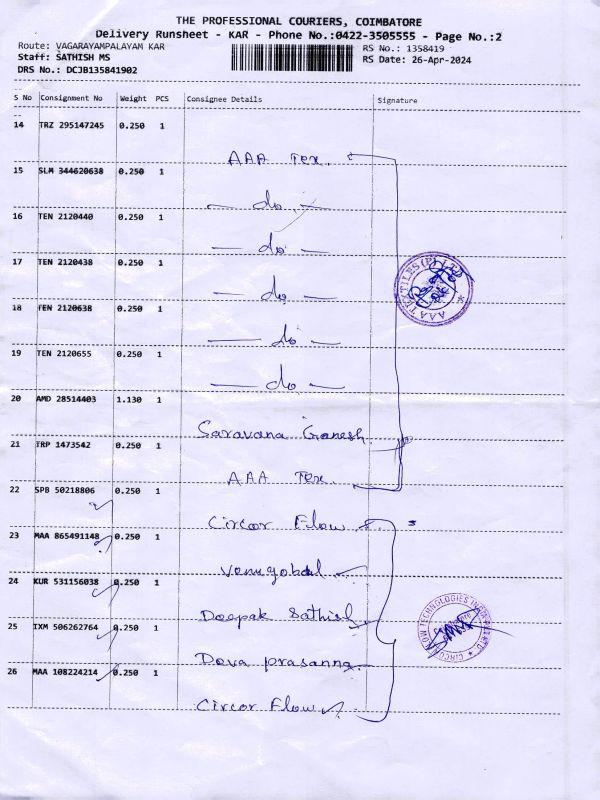 THE PROFESSIONAL COURIERS, COIMBATORE
Delivery Runsheet - KAR - Phone No.:0422-3505555 - Page No.:2
Route: VAGARAYAMPALAYAM KAR
RS No.: 1358419
Staff: SATHISH MS
RS Date: 26-Apr-2024
DRS No.: DCJB135841902
S No Consignment No Weight PCS Consignee Details Signature
14 TRZ 295147245 0.250 1
AAA Tex.
15 SLM 344620638 0.250 1
— do —
16 TEN 2120440 0.250 1
— do —
17 TEN 2120438 0.250 1
— do —
18 TEN 2120638 0.250 1
— do —
19 TEN 2120655 0.250 1
— do —
20 AMD 28514403 1.130 1
Saravana Ganesh
21 TRP 1473542 0.250 1
AAA Tex.
22 SPB 50218806 0.250 1
Circor Flow
23 MAA 865491148 0.250 1
Venugobal
24 KUR 531156038 0.250 1
Deepak Sathish
25 IXM 506262764 0.250 1
Deva prasanna
26 MAA 108224214 0.250 1
Circor Flow
AAA TEXTILES (P) LTD